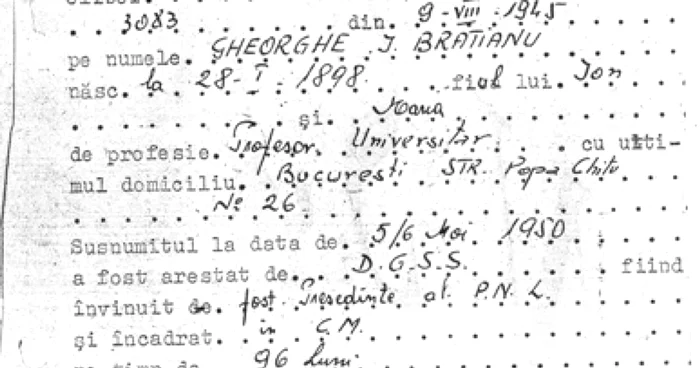 3083 din 9-VIII-1945
pe numele. GHEORGHE I. BRĂTIANU
născ. la 28-I-1898. fiul lui. Ion
și.
de profesie. Profesor. Universitar. cu ulti-
mul domiciliu. București STR. Popa Chițu
No 26
Susnumitul la data de. 5/6 Mai 1950
a fost arestat de. D.G.S.S. fiind
învinuit de. fost Președinte al P.N.L.
și încadrat. in C.M.
96 luni